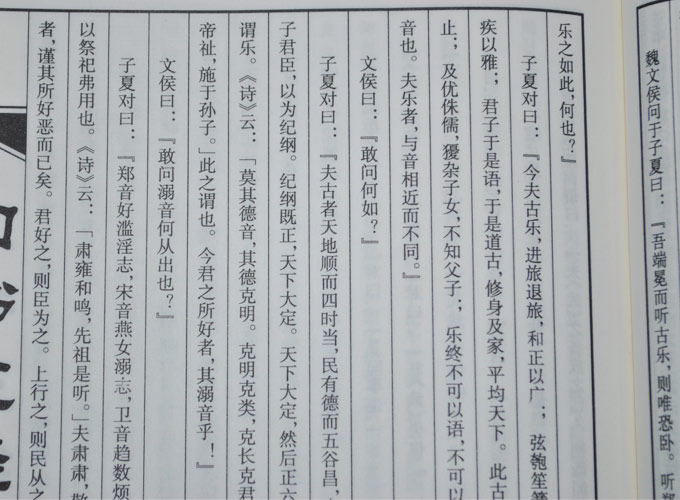 魏文侯问于子夏曰：『吾端冕而听古乐，则唯恐卧。听郑
乐之如此，何也？』
子夏对曰：『今夫古乐，进旅退旅，和正以广；弦匏笙簧
疾以雅；君子于是语，于是道古，修身及家，平均天下。此古
止；及优侏儒，獶杂子女，不知父子；乐终不可以语，不可
音也。夫乐者，与音相近而不同。』
文侯曰：『敢问何如？』
子夏对曰：『夫古者天地顺而四时当，民有德而五谷昌，
子君臣，以为纪纲。纪纲既正，天下大定。天下大定，然后正六
谓乐。《诗》云：「莫其德音，其德克明。克明克类，克长克君
帝祉，施于孙子。」此之谓也。今君之所好者，其溺音乎！』
文侯曰：『敢问溺音何从出也？』
子夏对曰：『郑音好滥淫志，宋音燕女溺志，卫音趋数烦
以祭祀弗用也。《诗》云：「肃雍和鸣，先祖是听。」夫肃肃，敬
者，谨其所好恶而已矣。君好之，则臣为之。上行之，则民从之